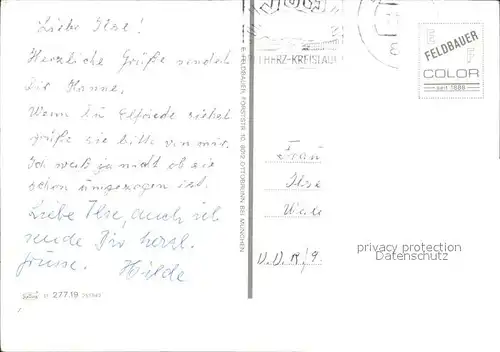 Liebe Ilse!
Herzliche Grüße sendet
Dir Hanne.
Wenn Du Elfriede siehst
grüße sie bitte von mir.
Ich weiß ja nicht ob sie
schon umgezogen ist.
Liebe Ilse, auch ich
sende Dir herzl.
Grüsse. Hilde
11 277.19
E. FELDBAUER, FORSTSTR. 10, 8012 OTTOBRUNN BEI MÜNCHEN
HERZ-KREISLAUF
FELDBAUER
COLOR
seit 1886
Frau
Ilse
privacy protection
Datenschutz